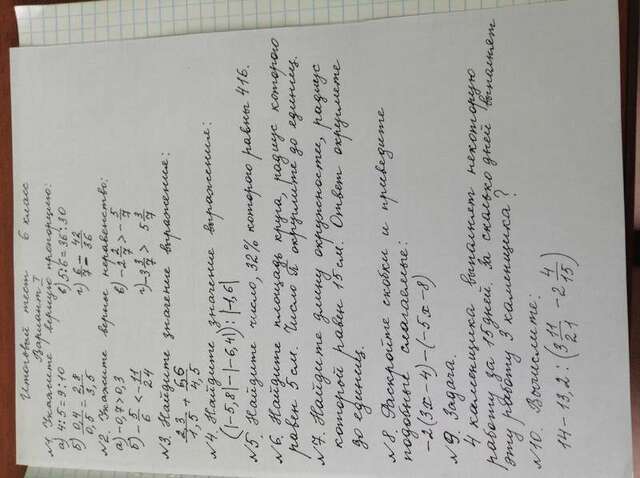 Итоговый тест 6 класс
Вариант 1
№1 Укажите верную пропорцию:
а) 4:5=9:10 в) 5:6=36:30
б) 0,4/0,5 = 2,8/3,5 г) 6/7 = 42/36
№2. Укажите верное неравенство:
а) -0,7>0,3
б) -5/6 < -11/24
г) -3 3/7 > 5 3/7
№3. Найдите значение выражения:
2,3/1,5 + 5,6/4,5
№4. Найдите значение выражения:
(|-5,8|-|-6,4|):|-1,6|
№5 Найдите число, 32% которого равны 416.
№6. Найдите площадь круга, радиус которого
равен 5см. Число π округлите до единиц.
№7. Найдите длину окружности, радиус
которой равен 15м. Ответ округлите
до единиц.
№8. Раскройте скобки и приведите
подобные слагаемые:
-2(3x-4)-(-5x-8)
№9. Задача.
4 каменщика выполняет некоторую
работу за 15 дней. За сколько дней выполняет
эту работу 3 каменщика?
№10. Вычислите:
14-13,2:(3 11/21 -2 4/15)